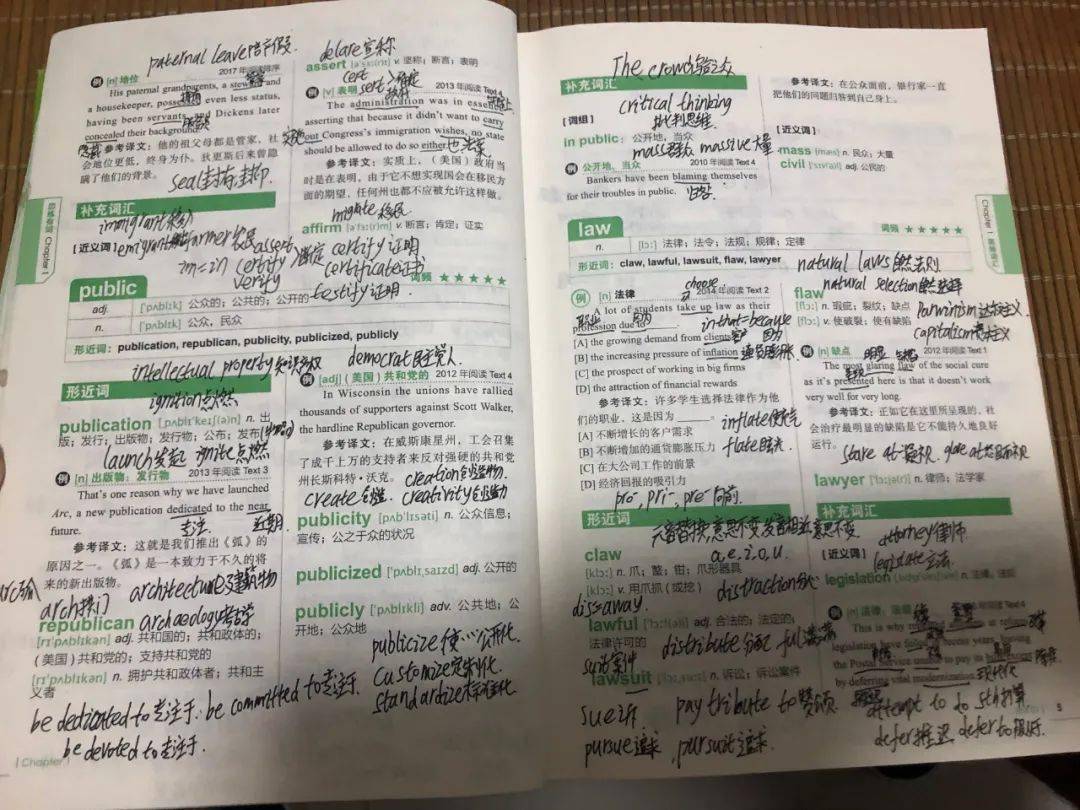 paternal leave陪产假
例 [n] 地位
2017年阅读
His paternal grandparents, a steward and
a housekeeper, possessed even less status,
having been servants. Dickens later
concealed their background.
隐藏
参考译文：他的祖父母都是管家，社
会地位更低，终身为仆。狄更斯后来曾隐
瞒了他们的背景。
seal封锁,封印.
补充词汇
immigrant移入
[近义词] emigrant farmer农民
im=in
delare宣称
assert [ə'sɜːrt] v. 坚称；断言；表明
cert
例 [v] 表明 2013年阅读 Text 4
The administration was in essence
asserting that because it didn't want to carry
out Congress's immigration wishes, no state
should be allowed to do so either.
参考译文：实质上，（美国）政府当
时是在表明，由于它不想实现国会在移民方
面的期望，任何州也都不应被允许这样做。
migrate移民
affirm [ə'fɜːrm] v. 断言；肯定；证实
assert
certify 证明
certificate证书
verify
testify 证明.
public
词频 ★★★★★
adj. ['pʌblɪk] 公众的；公共的；公开的
n. ['pʌblɪk] 公众，民众
形近词：publication, republican, publicity, publicized, publicly
intellectual property 知识产权
形近词
ignition点燃
publication [ˌpʌblɪ'keɪʃ(ə)n] n. 出
版；发行；出版物；发行物；公布；发布
launch发起 ignite点燃
例 [n] 出版物；发行物 2013年阅读 Text 3
That's one reason why we have launched
Arc, a new publication dedicated to the near
future.
专注. 近期.
参考译文：这就是我们推出《弧》的
原因之一。《弧》是一本致力于不久的将
来的新出版物。
arch拱门
architecture建筑物
archaeology考古学
republican
[rɪ'pʌblɪkən] adj. 共和国的；共和政体的；
（美国）共和党的；支持共和党的
[rɪ'pʌblɪkən] n. 拥护共和政体者；共和主
义者
democrat民主党人
例 [adj]（美国）共和党的 2012年阅读 Text 4
In Wisconsin the unions have rallied
thousands of supporters against Scott Walker,
the hardline Republican governor.
参考译文：在威斯康星州，工会召集
了成千上万的支持者来反对强硬的共和党
州长斯科特·沃克。
creation创造物
create创造. creativity创造力
publicity [pʌb'lɪsəti] n. 公众信息；
宣传；公之于众的状况
publicized ['pʌblɪˌsaɪzd] adj. 公开的
publicly ['pʌblɪkli] adv. 公共地；公
开地；公众地
publicize使…公开化.
customize定制化.
standardize标准化
be dedicated to专注于. be committed to专注于.
be devoted to专注于.
Chapter 1
The crowd
补充词汇
critical thinking
批判思维.
[词组]
in public：公开地，当众
mass群众, massive大量
例 公开地，当众 2010年阅读 Text 4
Bankers have been blaming themselves
for their troubles in public.
参考译文：在公众面前，银行家一直
把他们的问题归咎到自己身上。
[近义词]
mass [mæs] n. 民众；大量
civil ['sɪv(ə)l] adj. 公民的
law
词频 ★★★★★
n. [lɔː] 法律；法令；法规；规律；定律
形近词：claw, lawful, lawsuit, flaw, lawyer
natural laws自然法则
natural selection自然选择
choose
例 [n] 法律 2014年阅读 Text 2
A lot of students take up law as their
profession due to ______.
职业
in that=because
[A] the growing demand from clients
[B] the increasing pressure of inflation 通货膨胀
[C] the prospect of working in big firms
[D] the attraction of financial rewards
参考译文：许多学生选择法律作为他
们的职业，这是因为______。
[A] 不断增长的客户需求
[B] 不断增加的通货膨胀压力
[C] 在大公司工作的前景
[D] 经济回报的吸引力
pro-, pri-, pre-向前.
形近词
元音替换,意思不变,发音相近,意思不变.
a, e, i, o, u.
claw
[klɔː] n. 爪；螯；钳；爪形器具
[klɔː] v. 用爪抓（或挖）
distraction分心
dis=away.
lawful ['lɔːf(ə)l] adj. 合法的；法定的；
法律许可的
distribute分配
suit案件
lawsuit ['lɔːsuːt] n. 诉讼；诉讼案件
sue诉 pay tribute to赞颂
pursue追求, pursuit追求.
flaw
[flɔː] n. 瑕疵；裂纹；缺点
[flɔː] v. 使破裂；使有缺陷
Darwinism达尔文主义
capitalism资本主义
例 [n] 缺点 2012年阅读 Text 1
The most glaring flaw of the social cure
as it's presented here is that it doesn't work
very well for very long.
参考译文：正如它在这里所呈现的，社
会治疗最明显的缺陷是它不能持久地良好
运行。
stare at凝视.
lawyer ['lɔːjə(r)] n. 律师；法学家
补充词汇
attorney律师
[近义词] legislate立法.
legislation n. 法律，法规
the Postal Service unable to pay its
by deferring vital modernization.
现代化
attempt to do sth打算
defer推迟 defer to服从.
忠练有词 Chapter 1
Chapter 1
5